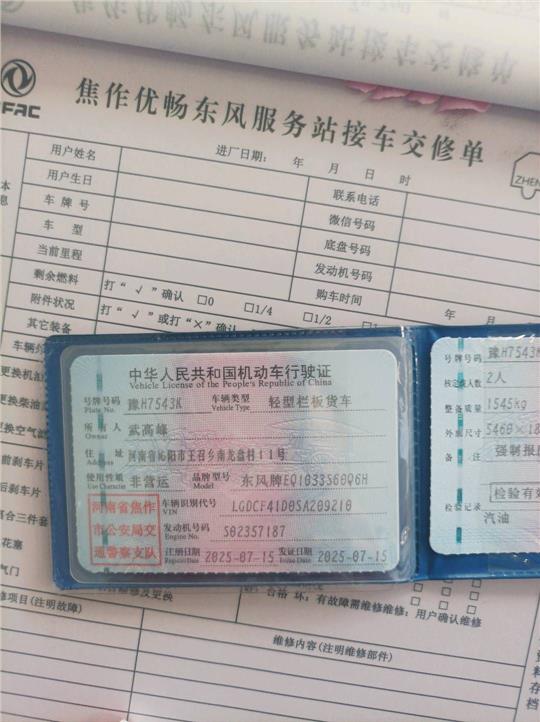 焦作优畅东风服务站接车交修单
进厂日期： 年 月 日 时
用户姓名
用户生日
联系电话
车牌号
微信号码
车 型
底盘号码
当前里程
发动机号码
剩余燃料 打“√”确认 □0 □1/4 □1/2
购车时间 年 月
附件状况 打“√”或打“×”确认
其它装备
中华人民共和国机动车行驶证
Vehicle License of the People's Republic of China
号牌号码 豫H7543K 车辆类型 轻型栏板货车
Plate No. Vehicle Type
所有人 武高峰
Owner
住址 河南省沁阳市王召乡南龙盘村11号
Address
使用性质 非营运 品牌型号 东风牌EQ1033S60Q6H
Use Character Model
河南省焦作
市公安局交
通警察支队
车辆识别代号 LGDCF41D0SA209210
VIN
发动机号码 S02357187
Engine No.
注册日期 2025-07-15 发证日期 2025-07-15
Register Date Issue Date
号牌号码 豫H7543K
核定载人数 2人
整备质量 1545kg
外廓尺寸 5460×18
备注 强制报废
检验有效
检验记录
汽油
更换机油
更换柴油
更换空气
前刹车片
后刹车片
离合三件套
火花塞
气门
合格 坏：有故障需维修维修：用户确认维修
修项目(注明故障)
维修内容(注明维修部件)